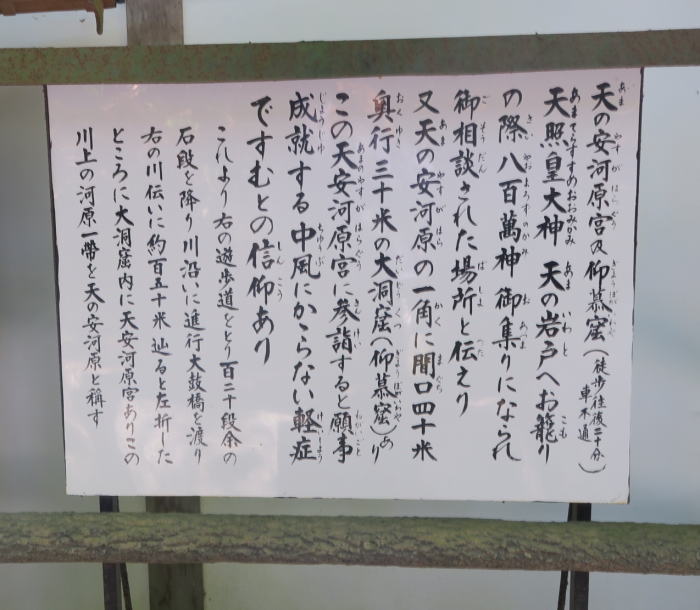 天の安河原宮及仰慕窟（徒歩往復二十分 車不通）
天照皇大神 天の岩戸へお籠り
の際八百萬神御集りになられ
御相談された場所と伝えり
又天の安河原の一角に間口四十米
奥行三十米の大洞窟（仰慕窟）あり
この天安河原宮に参詣すると願事
成就する中風にかゝらない軽症
ですむとの信仰あり
これより右の遊歩道をとり百二十段余の
石段を降り川沿いに進行大鼓橋を渡り
右の川伝いに約百五十米辿ると左折した
ところに大洞窟内に天安河原宮ありこの
川上の河原一帶を天の安河原と称す